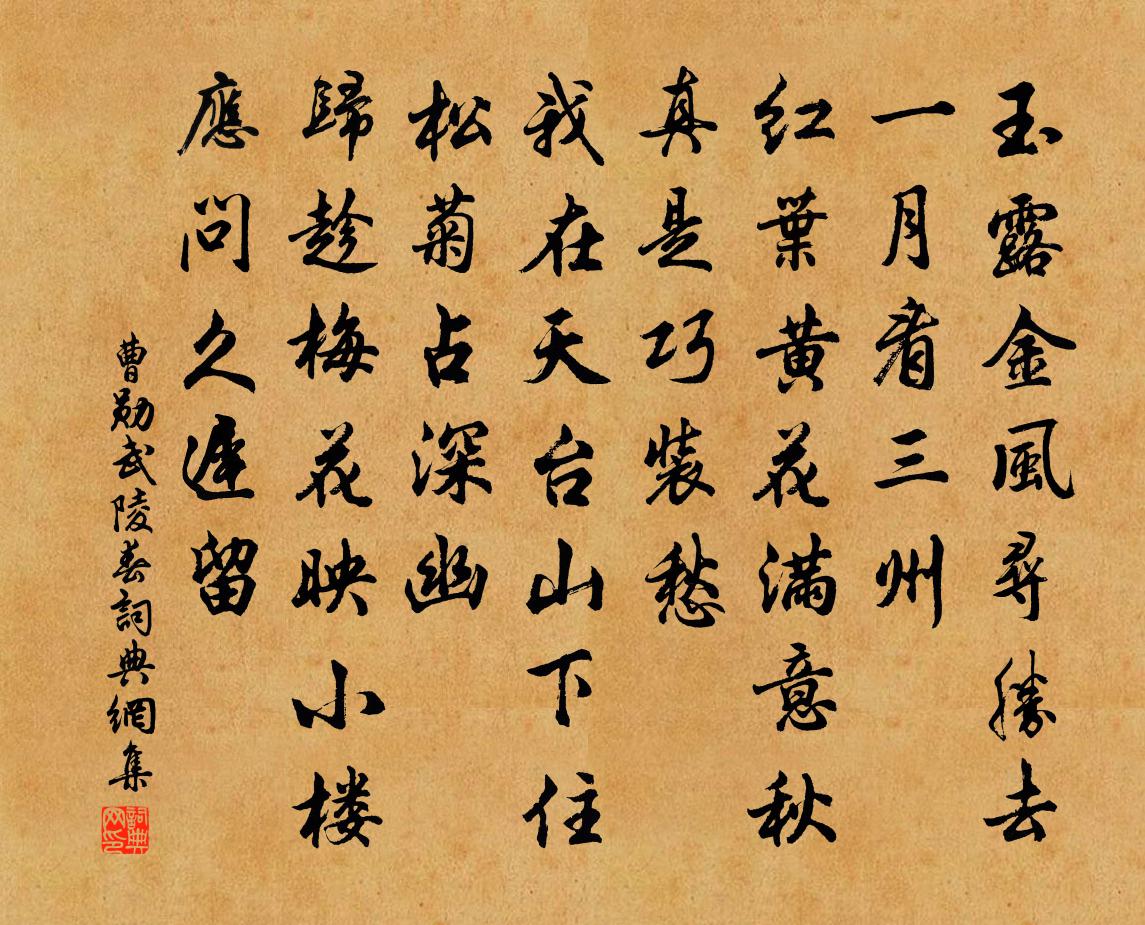 玉露金風尋勝去
一月看三州
紅葉黃花滿意秋
真是巧裝愁
我在天台山下住
松菊占深幽
歸趁梅花映小楼
應問久遲留
曹勛武陵春詞典網集
詞典網印